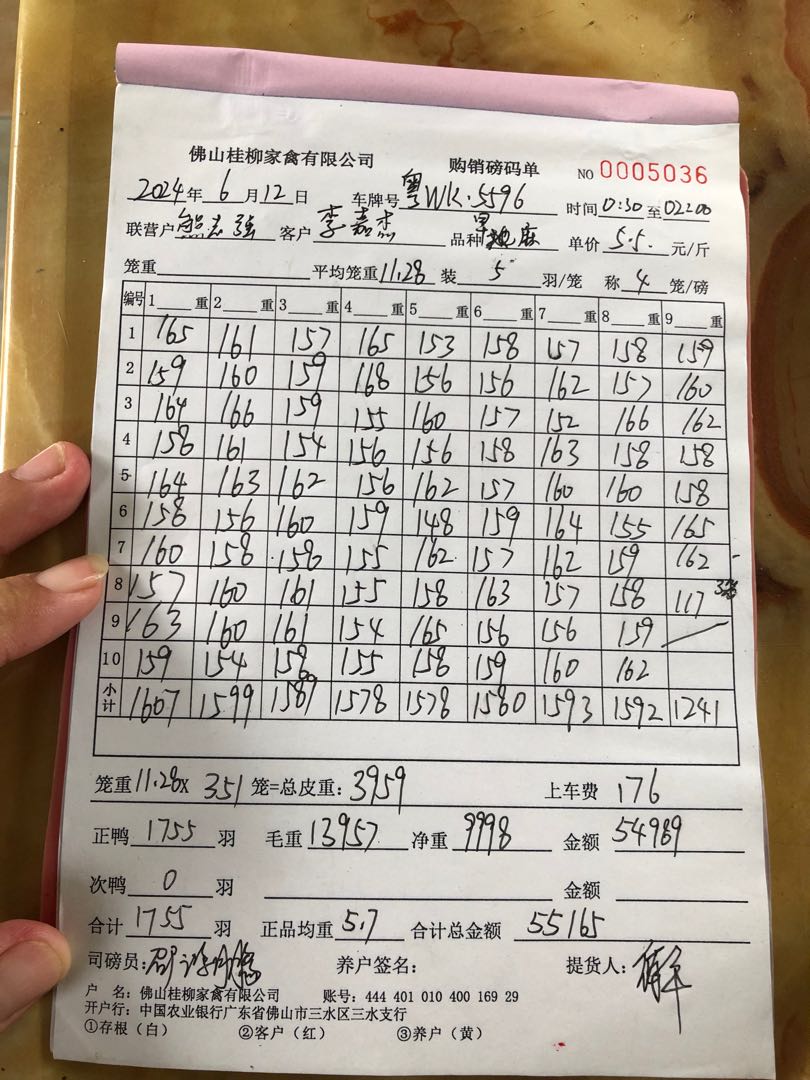 佛山桂柳家禽有限公司 购销磅码单 NO 0005036
2024年6月12日 车牌号 粤WK·5596 时间 0:30 至 02:00
联营户 熊志强 客户 李嘉杰 品种 单价 5.5. 元/斤
笼重 平均笼重 11.28 装 5 羽/笼 称 4 笼/磅
编号 1 重 2 重 3 重 4 重 5 重 6 重 7 重 8 重 9 重
1 165 161 157 165 153 158 157 158 159
2 159 160 159 168 156 156 162 157 160
3 164 166 159 155 160 157 152 166 162
4 158 161 154 156 156 158 163 158 158
5 164 163 162 156 162 157 160 160 158
6 158 156 160 159 148 159 164 155 165
7 160 158 158 155 162 157 162 159 162
8 157 160 161 155 158 163 157 158 117
9 163 160 161 154 165 156 156 159
10 159 154 158 155 158 159 160 162
小计 1607 1599 1589 1578 1578 1580 1593 1592 1241
笼重 11.28 X 351 笼=总皮重: 3959 上车费 176
正鸭 1755 羽 毛重 13957 净重 9998 金额 54989
次鸭 0 羽 金额
合计 1755 羽 正品均重 5.7 合计总金额 55165
司磅员: 养户签名: 提货人:
户 名: 佛山桂柳家禽有限公司 账号: 444 401 010 400 169 29
开户行: 中国农业银行广东省佛山市三水区三水支行
①存根（白） ②客户（红） ③养户（黄）